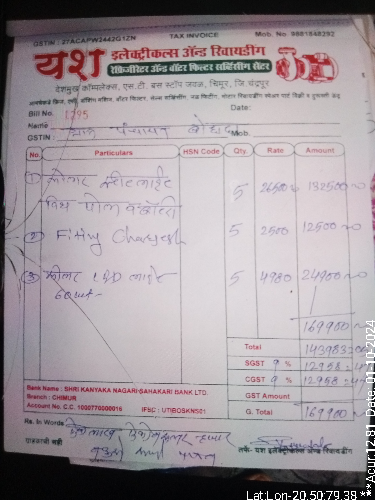 GSTIN : 27ACAPW2442G1ZN TAX INVOICE Mob. No. 9881848292
यश इलेक्ट्रीकल्स ॲन्ड रिवायडींग
रेफ्रिजीरेटर ॲन्ड वॉटर फिल्टर सर्व्हिसिंग सेंटर
देशमुख कॉम्प्लेक्स, एस.टी. बस स्टॉप जवळ, चिमूर, जि. चंद्रपूर
Bill No. 1295 Date:
Name ग्राम पंचायत
GSTIN : Mob.
No. Particulars HSN Code Qty. Rate Amount
① सोलार स्ट्रीटलाईट 5 26500 132500
विथ पोल बॅटरी
② Fiting Charges 5 2500 12500
③ सोलार LED लाईट 5 4980 24900
60 watt
169900
Total 143983
SGST 9 % 12958
CGST 9 % 12958
GST Amount
G. Total 169900
Bank Name : SHRI KANYAKA NAGARI SAHAKARI BANK LTD.
Branch : CHIMUR
Account No. C.C. 1000770000016 IFSC : UTIBOSKNS01
Rs. In Words एक लाख हजार
ग्राहकाची सही तर्फे - यश इलेक्ट्रीकल्स ॲन्ड रिवायडींग
Lat:Lon-20.50:79.38
**Acur:12.81 Date:01-10-2024